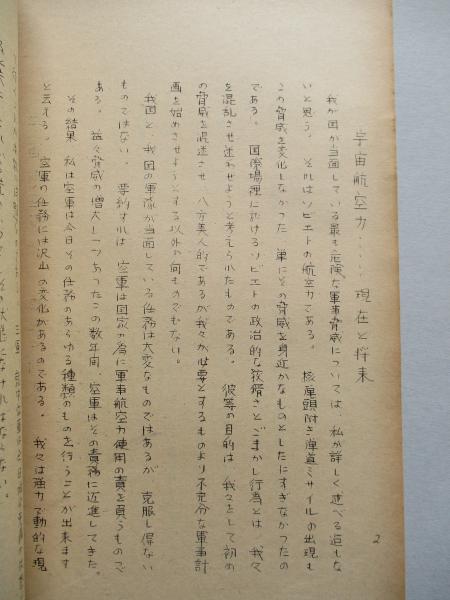 宇宙航空力……現在と将来
我が国が当面している最も危険な軍事脅威については、私が詳しく述べる迄もな
いと思う。それはソビエトの航空力である。核弾頭附き弾道ミサイルの出現も
この脅威を変化しなかった 単にその脅威を身近かなものとしたにすぎなかったの
である。国際場裡に於けるソビエトの政治的な狡猾さとごまかし行為とは、我々
を混乱させ迷わせようと考えられたものである。彼等の目的は 我々をして初め
の脅威を混迷させ 八方美人的であるが我々が必要とするものより不充分な軍事計
画を始めさせようとする以外の何ものでもない。
我国と、我国の軍隊が当面している任務は大変なものではあるが 克服し得ない
ものではない、要約すれば 空軍は国家の為に軍事航空力使用の責を負うもので
ある。益々脅威の増大しつつあったこの数年間、空軍はその責務に邁進してきた。
その結果 私は空軍は今日その任務のあらゆる種類のものを行うことが出来ます
と云える。空軍の任務には沢山の変化があるのである。我々は強力で動的な現
2